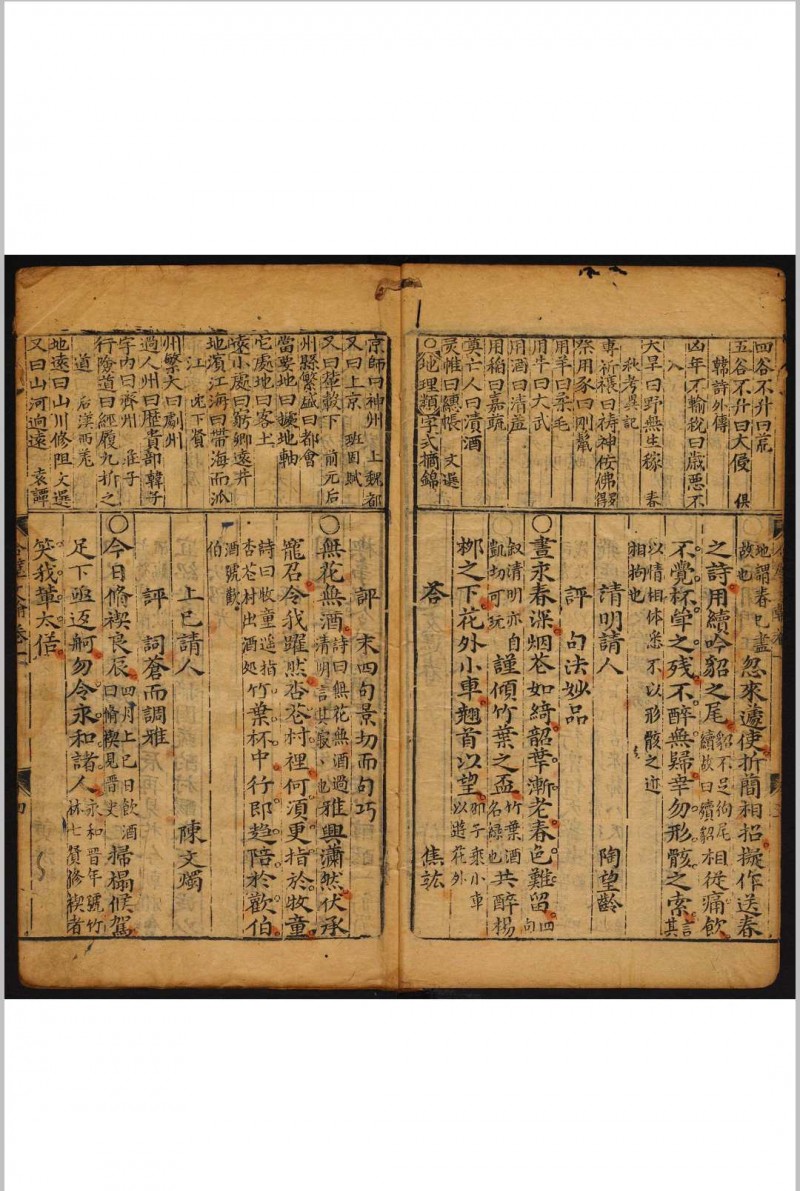 四谷不升曰荒
五谷不升曰大侵 俱
韓詩外傳
凶年不輸稅曰歲惡不
入
大旱曰野無生稼 春
秋考異記
專祈禳曰禱神佞佛
祭用豕曰剛鬣
用羊曰柔毛
用牛曰大武
用酒曰清酌
用稻曰嘉蔬
奠亡人曰漬酒
灵帷曰繐帳 文選
○地理類字式摘錦
地謂春已盡
故也 忽來遽使折簡相招擬作送春
之詩用續吟貂之尾 貂不足狗尾
續故曰續貂 相從痛飲
不覺杯斝之残不醉無歸幸勿形骸之索 言
其
以情相体悉不以形骸之迹
相拘也
清明請人 陶望齡
評 句法妙品
○晝永春深烟花如綺韶華漸老春色難留 四
句
叙清明亦自
凱切可玩 謹傾竹葉之盃 竹葉酒
名綠也 共醉楊
柳之下花外小車翹首以望 邵子乘小車
以遊花外
荅 焦竑
京師曰神州 上魏都
又曰上京 班固賦
又曰輦轂下 前元后
州縣繁盛曰都會
當要地曰據地軸
宅處地曰客土
遠小處曰窮鄉遠井
地濱江海曰帶海而派
江 沈下賢
州繁大曰劇州
過人州曰歷貴部 韓子
宇內曰齊州 隹子
行險道曰經履九折之
道 后漢西羗
地遠曰山川修阻 文選
又曰山河迥遠 袁譚
評 末四句景切而句巧
○無花無酒 詩曰無花無酒過
清明言其寂〻也 雅興瀟然伏承
寵召令我躍然杏花村裡何須更指於牧童
詩曰牧童遥指
杏花村出酒処 竹葉杯中行即趋陪於歡伯
酒號歡
伯
上巳請人 陳文燭
評 詞蒼而調雅
○今日脩禊良辰 四月上巳日飲酒
曰脩禊見晋史 掃榻候駕
足下亟返舸勿令永和諸人 永和晋年號竹
林七賢修禊者
笑我輩太俗